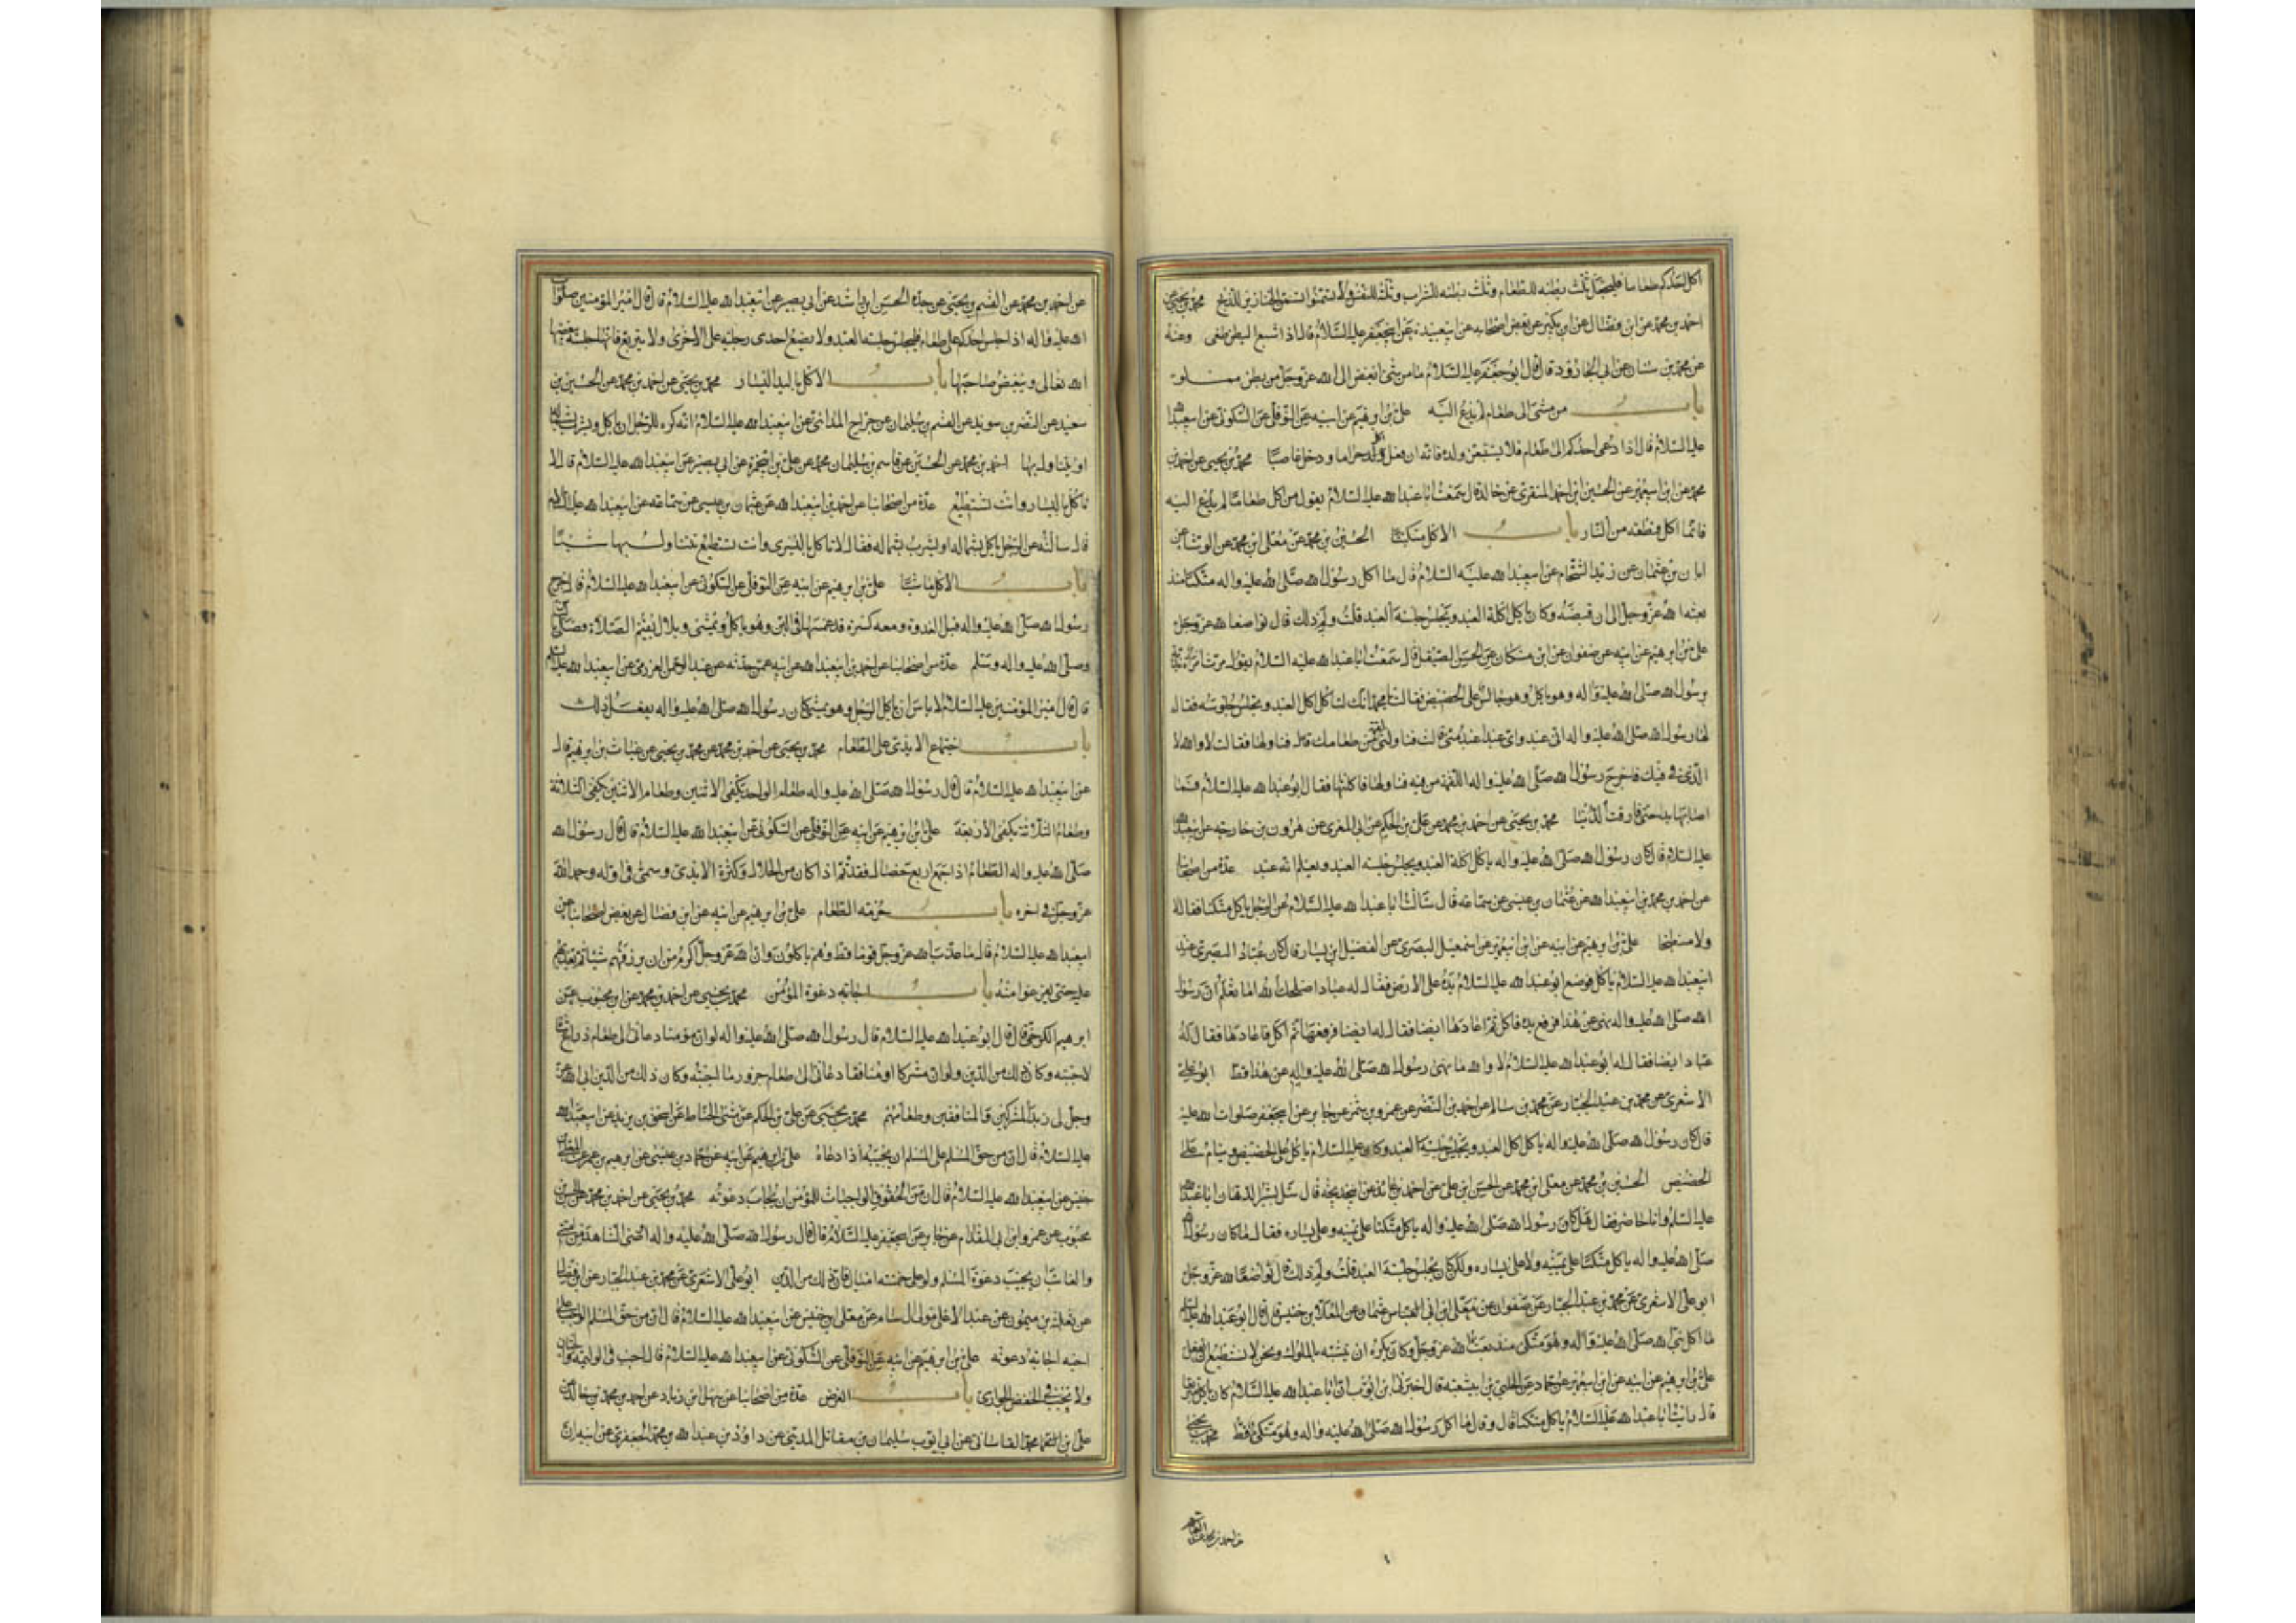 اكل احدكم طعاما فليجعل ثلث بطنه للطعام وثلث بطنه للشراب وثلث للنفس ولا تسمنوا تسمن الخنازير للذبح محمد بن يحيى عن
احمد بن محمد عن ابن فضال عن ابن بكير عن بعض اصحابه عن ابي عبيدة عن ابي جعفر عليه السلام قال اذا شبع البطن طغى وعنه
عن محمد بن سنان عن ابي الجارود قال قال ابو جعفر عليه السلام ما من شئ ابغض الى الله عز وجل من بطن مملو
باب من مشى الى طعام لم يدع اليه علي بن ابرهيم عن ابيه عن النوفلي عن السكوني عن ابي عبد الله
عليه السلام قال اذا دعى احدكم الى طعام فلا يستتبعن ولده فانه ان فعل اكل حراما ودخل غاصبا محمد بن يحيى عن احمد بن
محمد عن ابن ابي عمير عن الحسين ابن احمد المنقري عن خاله قال سمعت ابا عبد الله عليه السلام يقول من اكل طعاما لم يدع اليه
فانما اكل قطعة من النار باب الاكل متكئا الحسين بن محمد عن معلى ابن محمد عن الوشا عن
ابان بن عثمان عن زيد الشحام عن ابي عبد الله عليه السلام قال ما اكل رسول الله صلى الله عليه واله متكئا منذ
بعثه الله عز وجل الى ان قبضه وكان ياكل اكلة العبد ويجلس جلسة العبد قلت ولم ذلك قال تواضعا لله عز وجل
علي بن ابرهيم عن ابيه عن صفوان عن ابن مسكان عن الحسن الصيقل قال سمعت ابا عبد الله عليه السلام يقول مرت امراة بذية
برسول الله صلى الله عليه واله وهو ياكل وهو جالس على الحضيض فقالت يا محمد انك لتاكل اكل العبد وتجلس جلوسه فقال
لها رسول الله صلى الله عليه واله اني عبد واي عبد اعبد مني قالت فناولني لقمة من طعامك قال فناولها فقالت لا والله لا
الذي في فيك فاخرج رسول الله صلى الله عليه واله اللقمة من فيه فناولها فاكلتها فقال ابو عبد الله عليه السلام فما
اصابها بذا حتى فارقت الدنيا محمد بن يحيى عن احمد بن محمد عن علي بن الحكم عن ابي المغرى عن هرون بن خارجه عن ابي عبد الله
عليه السلام قال كان رسول الله صلى الله عليه واله ياكل اكلة العبد ويجلس جلسة العبد ويعلم انه عبد عدة من اصحابنا
عن احمد بن محمد بن ابي عبد الله عن عثمان بن عيسى عن سماعه قال سالت ابا عبد الله عليه السلام عن الرجل ياكل متكئا فقال لا
ولا منبطحا علي بن ابرهيم عن ابيه عن ابن ابي عمير عن اسمعيل البصري عن الفضيل ابن يسار قال كان عباد البصري عند
ابي عبد الله عليه السلام ياكل فوضع ابو عبد الله عليه السلام يده على الارض فقال له عباد اصلحك الله اما تعلم ان رسول
الله صلى الله عليه واله نهى عن هذا فرفع يده فاكل ثم اعادها ايضا فقال له ايضا فرفعها ثم اكل فاعادها فقال له
عباد ايضا فقال له ابو عبد الله عليه السلام لا والله ما نهى رسول الله صلى الله عليه واله عن هذا قط ابو علي
الاشعري عن محمد بن عبد الجبار عن محمد بن سالم عن احمد بن النضر عن عمرو بن شمر عن جابر عن ابي جعفر صلوات الله عليه
قال كان رسول الله صلى الله عليه واله ياكل اكل العبد ويجلس جلسة العبد وكان عليه السلام ياكل على الحضيض وينام على
الحضيض الحسين بن محمد عن معلى ابن محمد عن الحسن ابن علي عن احمد بن عائذ عن ابي خديجة قال سئل بشير الدهان ابا عبد الله
عليه السلام وانا حاضر فقال هل كان رسول الله صلى الله عليه واله ياكل متكئا على يمينه وعلى يساره فقال ما كان رسول الله
صلى الله عليه واله ياكل متكئا على يمينه ولا على يساره ولكن كان يجلس جلسة العبد قلت ولم ذلك قال تواضعا لله عز وجل
ابو علي الاشعري عن محمد بن عبد الجبار عن صفوان عن معلى ابن ابي عثمان عن المعلا بن خنيس قال قال ابو عبد الله عليه السلام
ما اكل نبي الله صلى الله عليه واله وهو متكى منذ بعثه الله عز وجل وكان يكره ان يتشبه بالملوك ونحن لا نستطيع ان نفعل
علي بن ابرهيم عن ابيه عن ابن ابي عمير عن حماد عن الحلبي عن ابن ابي شعبه قال اخبرني ابن ابي ايوب ان ابا عبد الله عليه السلام كان ياكل متربعا
قال رايت ابا عبد الله عليه السلام ياكل متكئا قال وقال ما اكل رسول الله صلى الله عليه واله وهو متكئ قط محمد بن يحيى
عن احمد بن محمد عن القسم
عن احمد بن محمد عن القسم بن يحيى عن جده الحسن ابن راشد عن ابي بصير عن ابي عبد الله عليه السلام قال قال امير المؤمنين صلوات
الله عليه واله اذا جلس احدكم على طعام فليجلس جلسة العبد ولا يضع احدى رجليه على الاخرى ولا يتربع فانها جلسة يبغضها
الله تعالى ويبغض صاحبها باب الاكل باليد اليسار محمد بن يحيى عن احمد بن محمد عن الحسين بن
سعيد عن النضر بن سويد عن القسم بن سليمان عن جراح المدائني عن ابي عبد الله عليه السلام انه كره للرجل ان ياكل ويشرب بشماله
او يتناول بها احمد بن محمد عن الحسين عن قاسم بن سليمان محمد عن علي بن ابي حمزة عن ابي بصير عن ابي عبد الله عليه السلام قال لا
تاكل باليسار وانت تستطيع عدة من اصحابنا عن احمد بن ابي عبد الله عن عثمان بن عيسى عن سماعه عن ابي عبد الله عليه السلام
قال سالته عن الرجل ياكل بشماله او يشرب بشماله فقال لا تاكل باليسرى وانت تستطيع تتناول بها شيئا
باب الاكل ماشيا علي بن ابرهيم عن ابيه عن النوفلي عن السكوني عن ابي عبد الله عليه السلام قال خرج
رسول الله صلى الله عليه واله قبل الغدوة ومعه كسرة قد غمسها في اللبن وهو ياكل ويمشى وبلال يقيم الصلاة فصلى
وصلى الله عليه واله وسلم عدة من اصحابنا عن احمد بن ابي عبد الله عن ابيه عمن حدثه عن عبد الرحمن العزرمي عن ابي عبد الله عليه السلام
قال قال امير المؤمنين عليه السلام لا باس ان ياكل الرجل وهو يمشى كان رسول الله صلى الله عليه واله يفعل ذلك
باب اجتماع الايدي على الطعام محمد بن يحيى عن احمد بن محمد عن محمد بن يحيى عن غياث بن ابرهيم قال
عن ابي عبد الله عليه السلام قال قال رسول الله صلى الله عليه واله طعام الواحد يكفى الاثنين وطعام الاثنين يكفى الثلاثة
وطعام الثلاثة يكفى الاربعة علي بن ابرهيم عن ابيه عن النوفلي عن السكوني عن ابي عبد الله عليه السلام قال قال رسول الله
صلى الله عليه واله الطعام اذا جمع اربع خصال فقد تم اذا كان من الحلال وكثرة الايدي وسمى في اوله وحمد الله
عز وجل في اخره باب حرمة الطعام علي بن ابرهيم عن ابيه عن ابن فضال عن بعض اصحابنا عن
ابي عبد الله عليه السلام قال ما عذب الله عز وجل قوما قط وهم ياكلون وان الله عز وجل اكرم من ان يرزقهم شيئا ثم يعذبهم
عليه حتى يفرغوا منه باب اجابة دعوة المؤمن محمد بن يحيى عن احمد بن محمد عن ابن محبوب عن
ابرهيم الكرخي قال قال ابو عبد الله عليه السلام قال رسول الله صلى الله عليه واله لو ان مؤمنا دعانى الى طعام ذراع شاة
لاجبته وكان ذلك من الدين ولو ان مشركا او منافقا دعانى الى طعام جزور ما اجبته وكان ذلك من الدين ابى الله عز
وجل لى زبد المشركين والمنافقين وطعامهم محمد بن يحيى عن علي بن الحكم عن مثنى الحناط عن اسحق بن يزيد عن ابي عبد الله
عليه السلام قال ان من حق المسلم على المسلم ان يجيبه اذا دعاه علي بن ابرهيم عن ابيه عن حماد بن عيسى عن ابرهيم بن عمر عن المعلى بن
خنيس عن ابي عبد الله عليه السلام قال ان من الحقوق الواجبات للمؤمن ان يجاب دعوته محمد بن يحيى عن احمد بن محمد عن الحسن بن
محبوب عن عمرو ابن ابي المقدام عن جابر عن ابي جعفر عليه السلام قال قال رسول الله صلى الله عليه واله اوصى الشاهد من امتى
والغائب ان يجيب دعوة المسلم ولو على خمسة اميال فان ذلك من الدين ابو علي الاشعري عن محمد بن عبد الجبار عن ابن فضال
عن ثعلبة بن ميمون عن عبد الاعلى مولى ال سام عن معلى ابن خنيس عن ابي عبد الله عليه السلام قال ان من حق المسلم الواجب على
اخيه اجابة دعوته علي بن ابرهيم عن ابيه عن النوفلي عن السكوني عن ابي عبد الله عليه السلام قال اجب في الوليمة والختان
ولا تجب في الخفض الجواري باب العرض عدة من اصحابنا عن سهل ابن زياد عن احمد بن محمد بن خالد عن
علي بن محمد القاساني عن ابي ايوب سليمان بن مقاتل المديني عن داود بن عبد الله بن محمد الجعفري عن ابيه ان